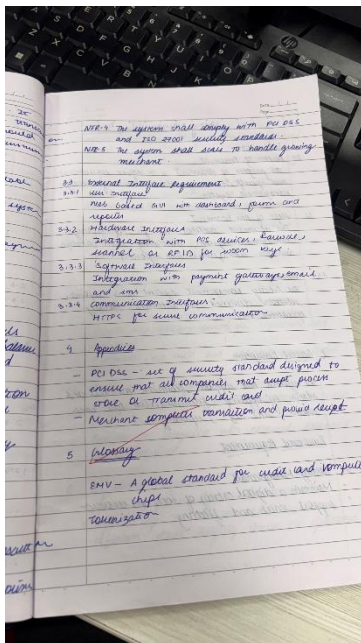 Date
NFR-4 The system shall comply with PCI DSS
and ISO 27001 security standards.
NFR-5 The system shall scale to handle growing
merchant
3.3 External Interface Requirement
3.3.1 User Interface
Web based GUI with dashboard, forms and
reports
3.3.2 Hardware Interfaces
Integration with POS devices, Barcode,
scanner or RFID for room keys
3.3.3 Software Interfaces
Integration with payment gateways, email
and sms
3.3.4 Communication Interfaces:
HTTPS for secure communication
4 Appendices
- PCI DSS - set of security standard designed to
ensure that all companies that accept process
store or transmit credit card
- Merchant completes transaction and provid receipt
5 Glossary
EMV - A global standard for credit card
chips
Tokenization